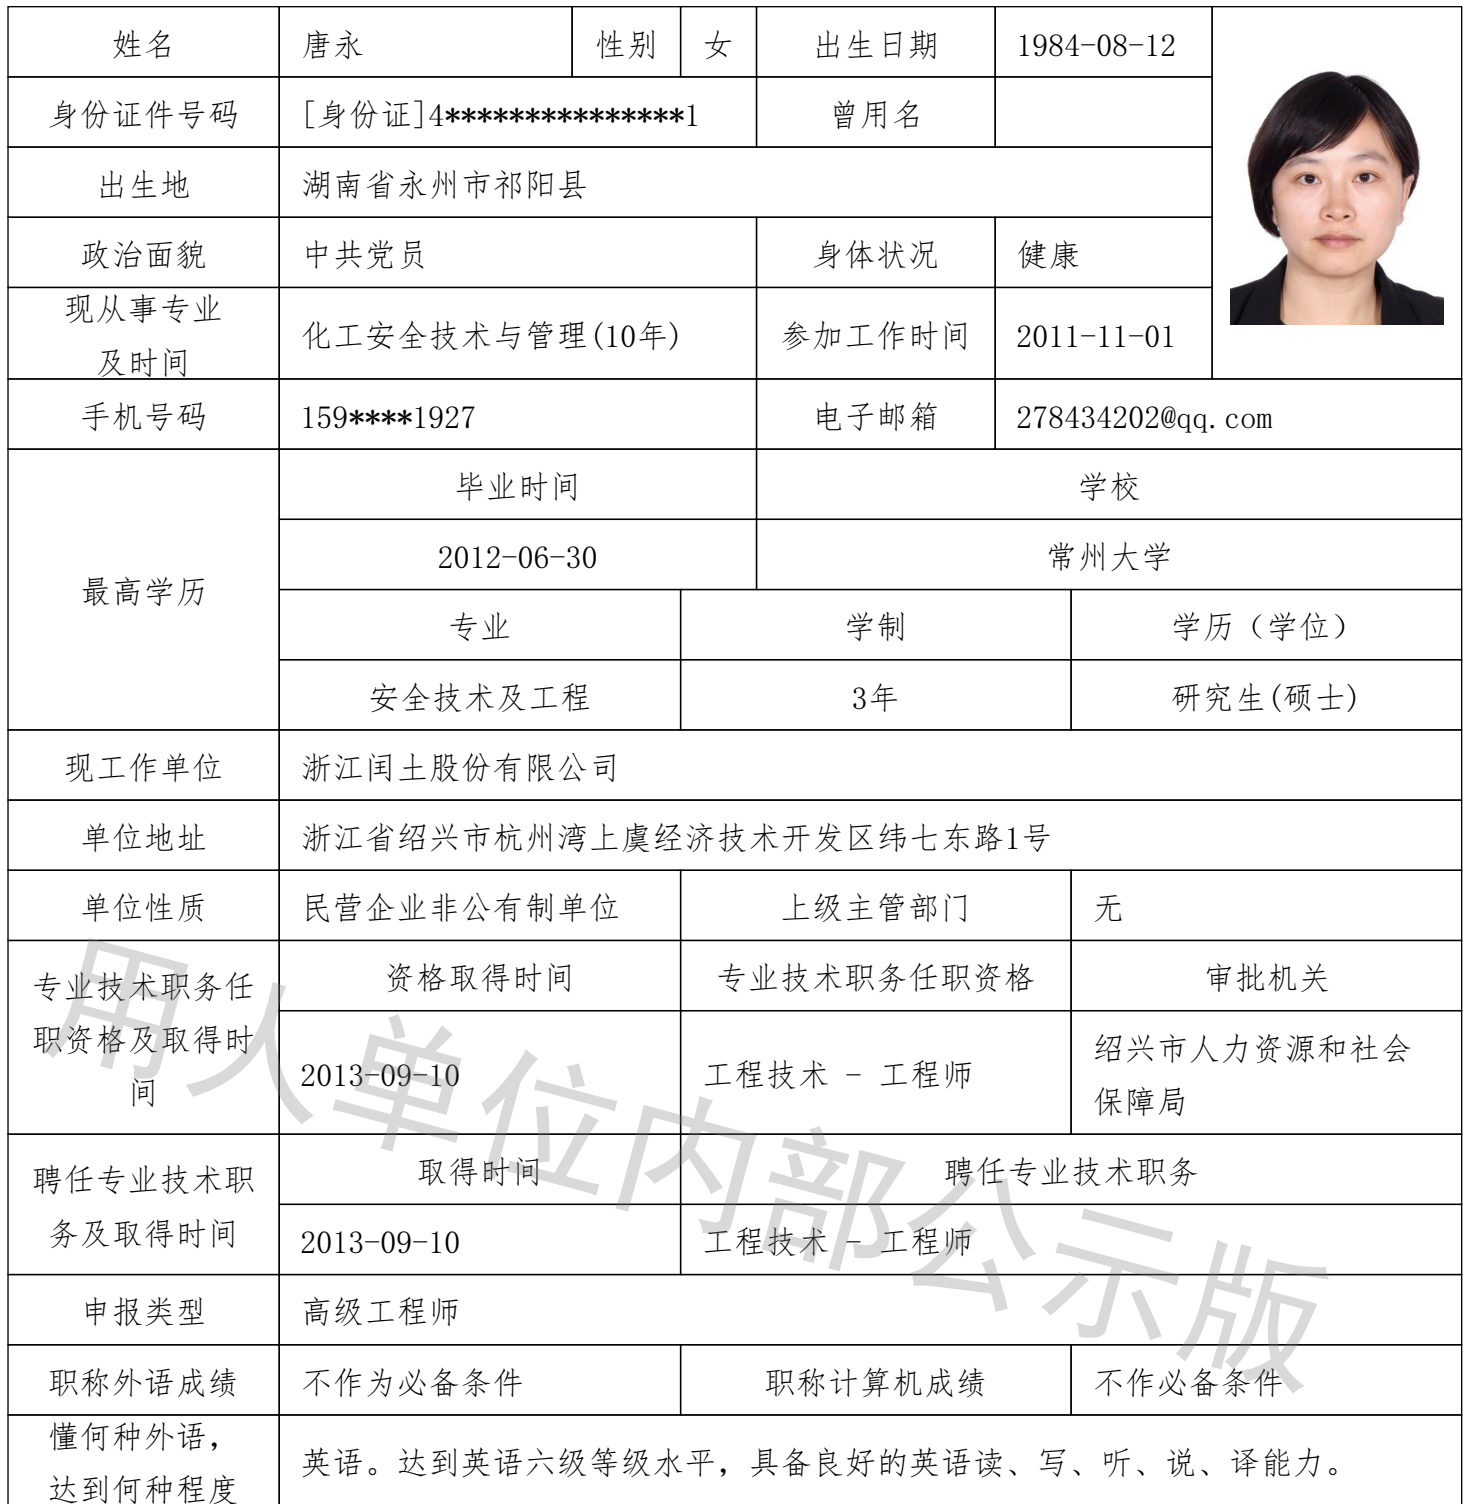 姓名 唐永 性别 女 出生日期 1984-08-12
身份证件号码 [身份证]4***************1 曾用名
出生地 湖南省永州市祁阳县
政治面貌 中共党员 身体状况 健康
现从事专业
及时间 化工安全技术与管理(10年) 参加工作时间 2011-11-01
手机号码 159****1927 电子邮箱 278434202@qq.com
最高学历
毕业时间 学校
2012-06-30 常州大学
专业 学制 学历（学位）
安全技术及工程 3年 研究生(硕士)
现工作单位 浙江闰土股份有限公司
单位地址 浙江省绍兴市杭州湾上虞经济技术开发区纬七东路1号
单位性质 民营企业非公有制单位 上级主管部门 无
专业技术职务任
职资格及取得时
间
资格取得时间 专业技术职务任职资格 审批机关
2013-09-10 工程技术 - 工程师 绍兴市人力资源和社会
保障局
聘任专业技术职
务及取得时间
取得时间 聘任专业技术职务
2013-09-10 工程技术 - 工程师
申报类型 高级工程师
职称外语成绩 不作为必备条件 职称计算机成绩 不作必备条件
懂何种外语，
达到何种程度 英语。达到英语六级等级水平，具备良好的英语读、写、听、说、译能力。
用人单位内部公示版